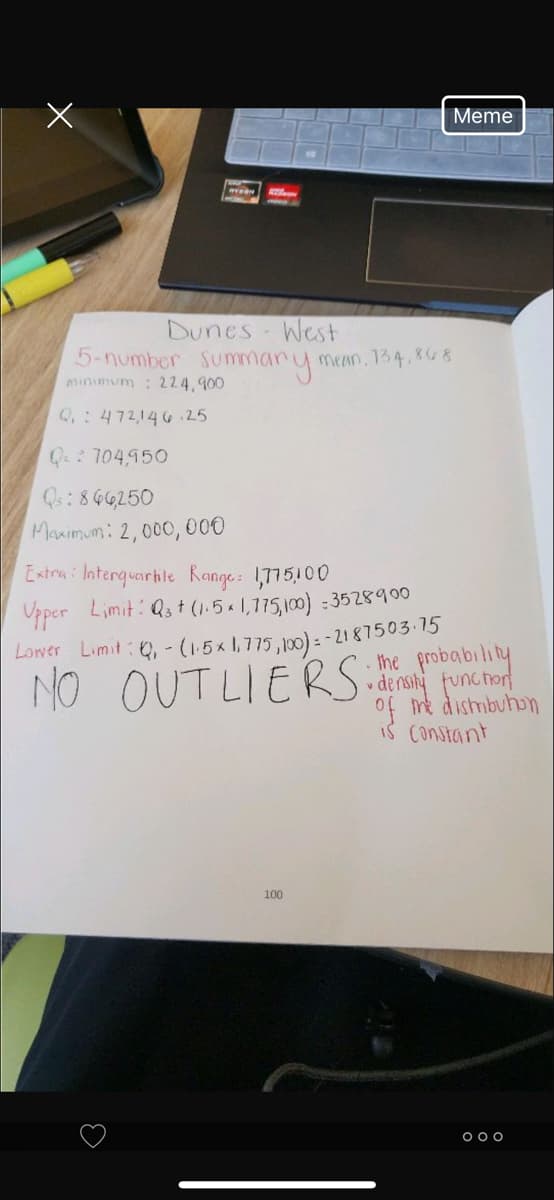 Meme
AMD
RYZEN
AMD
RADEON
Dunes - West
5-number summary mean. 734,868
minimum : 224,900
Q₁ : 472,146.25
Q₂ : 704,950
Q₃ : 866,250
Maximum: 2,000,000
Extra: Interquartile Range: 1,775,100
Upper Limit: Q₃ + (1.5 x 1,775,100) = 3528900
Lower Limit: Q₁ - (1.5 x 1,775,100) = -2187503.75
NO OUTLIERS
- the probability
density function
of the distribution
is constant
100